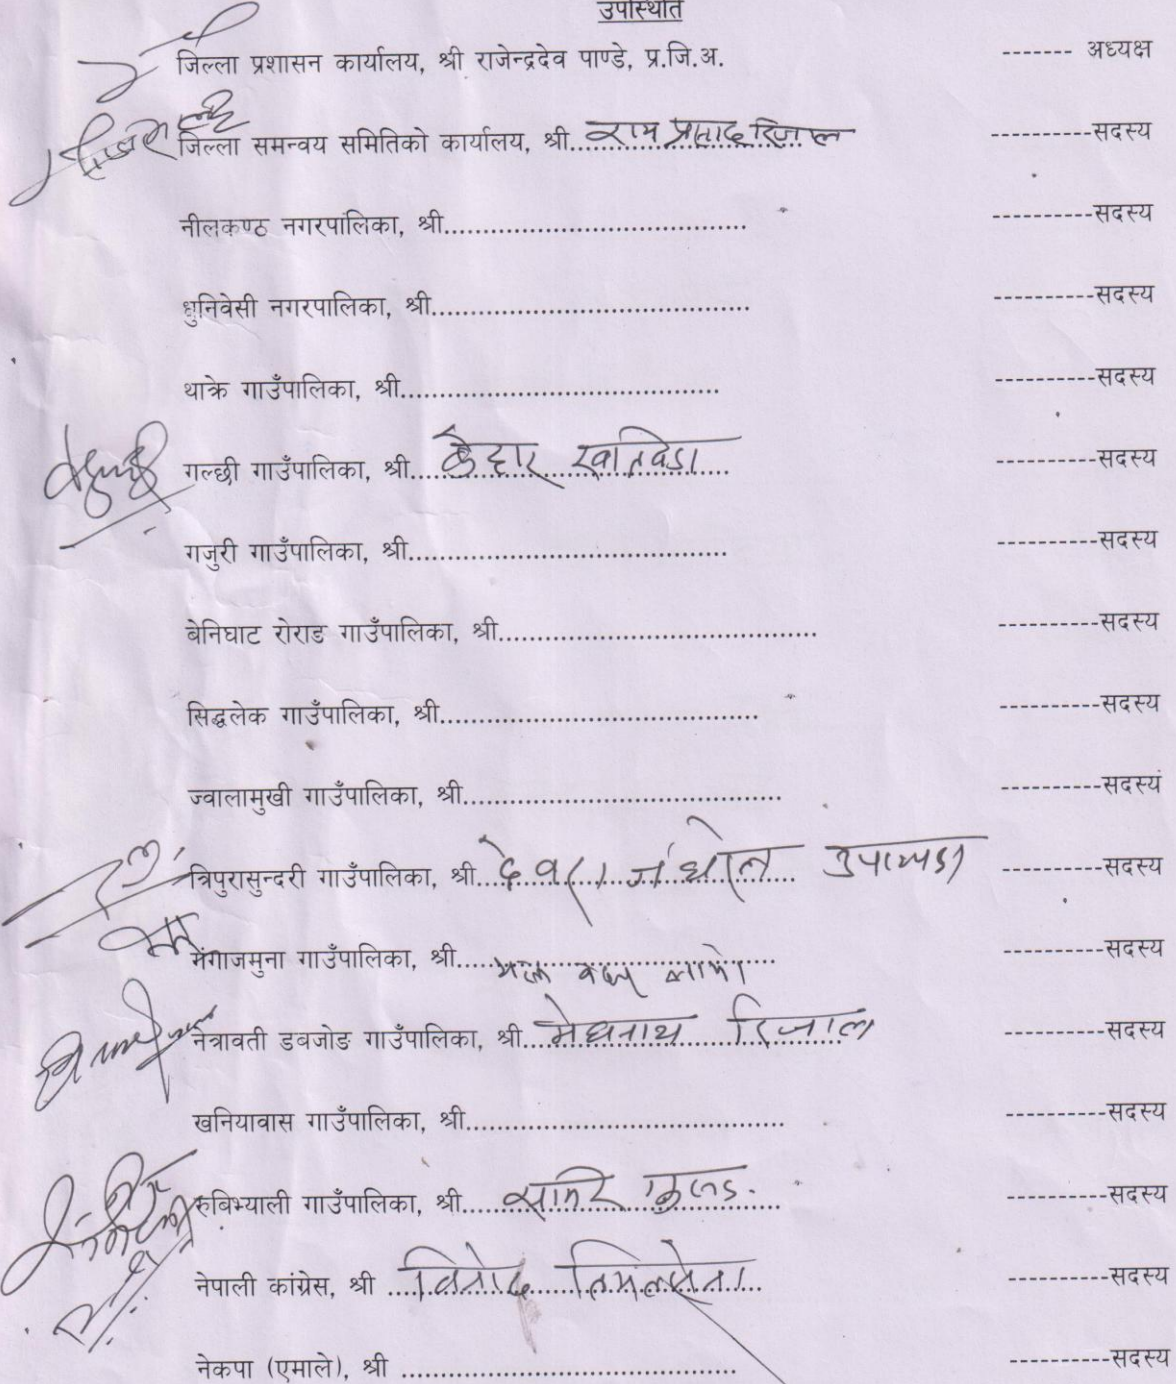 उपस्थिति
जिल्ला प्रशासन कार्यालय, श्री राजेन्द्रदेव पाण्डे, प्र.जि.अ. ------- अध्यक्ष
जिल्ला समन्वय समितिको कार्यालय, श्री.....राम प्रसाद रिजाल ----------सदस्य
नीलकण्ठ नगरपालिका, श्री...................................... ----------सदस्य
धुनिवेसी नगरपालिका, श्री........................................ ----------सदस्य
थाक्रे गाउँपालिका, श्री........................................ ----------सदस्य
गल्छी गाउँपालिका, श्री....केदार खतिवडा.... ----------सदस्य
गजुरी गाउँपालिका, श्री........................................ ----------सदस्य
बेनिघाट रोराङ गाउँपालिका, श्री........................................ ----------सदस्य
सिद्धलेक गाउँपालिका, श्री........................................ ----------सदस्य
ज्वालामुखी गाउँपालिका, श्री........................................ ----------सदस्य
त्रिपुरासुन्दरी गाउँपालिका, श्री.... ----------सदस्य
गंगाजमुना गाउँपालिका, श्री.... ----------सदस्य
नेत्रावती डबजोङ गाउँपालिका, श्री...मेघनाथ रिजाल ----------सदस्य
खनियावास गाउँपालिका, श्री........................................ ----------सदस्य
रुबिभ्याली गाउँपालिका, श्री.... ----------सदस्य
नेपाली कांग्रेस, श्री ....विनोद तिमल्सेना ----------सदस्य
नेकपा (एमाले), श्री .......................................... ----------सदस्य